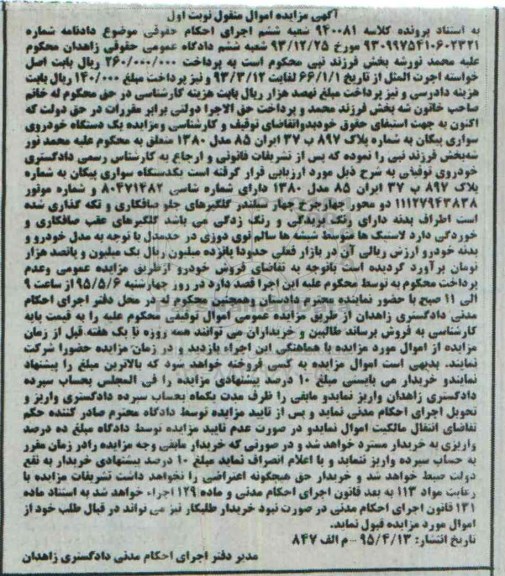 آگهی مزایده اموال منقول نوبت اول
به استناد پرونده کلاسه ۹۴۰۰۸۱ شعبه ششم اجرای احکام حقوقی موضوع دادنامه شماره
۹۳۰۹۹۷۵۴۱۰۶۰۲۳۲۱ مورخ ۹۳/۱۲/۲۵ شعبه ششم دادگاه عمومی حقوقی زاهدان محکوم
علیه محمد نورشه بخش فرزند نبی محکوم است به پرداخت ۲۶۰/۰۰۰/۰۰۰ ریال بابت اصل
خواسته اجرت المثل از تاریخ ۶۶/۱/۱ لغایت ۹۳/۳/۱۲ و نیز پرداخت مبلغ ۱۴۰/۰۰۰ ریال بابت
هزینه دادرسی و نیز پرداخت مبلغ نهصد هزار ریال بابت هزینه کارشناسی در حق محکوم له خانم
صاحب خاتون شه بخش فرزند محمد و پرداخت حق الاجرا دولتی برابر مقررات در حق دولت که
اکنون به جهت استیفای حقوق خودبدواتقاضای توقیف و کارشناسی ومزایده یک دستگاه خودروی
سواری پیکان به شماره پلاک ۸۹۷ ب ۳۷ ایران ۸۵ مدل ۱۳۸۰ متعلق به محکوم علیه محمد نور
شه‌بخش فرزند نبی را نموده که پس از تشریفات قانونی و ارجاع به کارشناس رسمی دادگستری
خودروی توقیفی به شرح ذیل مورد ارزیابی قرار گرفته است یکدستگاه سواری پیکان به شماره
پلاک ۸۹۷ ب ۳۷ ایران ۸۵ مدل ۱۳۸۰ دارای شماره شاسی ۸۰۴۷۱۴۸۲ و شماره موتور
۱۱۱۲۷۹۴۳۸۳۸ دو محور چهارچرخ چهار سیلندر گلگیرهای جلو صافکاری و تکه گذاری شده
است اطراف بدنه دارای رنگ پریدگی و رنگ زدگی می باشد گلگیرهای عقب صافکاری و
خوردگی دارد لاستیک ها متوسط شیشه ها سالم توی دوزی در حدمدل با توجه به مدل خودرو و
بدنه خودرو ارزش ریالی آن در بازار فعلی حدودا پانزده میلیون ریال یک میلیون و پانصد هزار
تومان برآورد گردیده است باتوجه به تقاضای فروش خودرو ازطریق مزایده عمومی وعدم
پرداخت محکوم به توسط محکوم علیه این اجرا قصد دارد در روز چهارشنبه ۹۵/۵/۶ از ساعت ۹
الی ۱۱ صبح با حضور نماینده محترم دادستان وهمچنین محکوم له در محل دفتر اجرای احکام
مدنی دادگستری زاهدان از طریق مزایده عمومی اموال توقیفی محکوم علیه را به قیمت پایه
کارشناسی به فروش برساند طالبین و خریداران می توانند همه روزه تا یک هفته قبل از زمان
مزایده از اموال مورد مزایده با هماهنگی این اجراء بازدید و در زمان مزایده حضورا شرکت
نمایند. بدیهی است اموال مزایده به کسی فروخته خواهد شود که بالاترین مبلغ را پیشنهاد
نمایندو خریدار می بایستی مبلغ ۱۰ درصد پیشنهادی مزایده را فی المجلس بحساب سپرده
دادگستری زاهدان واریز نمایدو مابقی را ظرف مدت یکماه بحساب سپرده دادگستری واریز و
تحویل اجرای احکام مدنی نماید و پس از تایید مزایده توسط دادگاه محترم صادر کننده حکم
تقاضای انتقال مالکیت اموال نمایدو در صورت عدم تایید مزایده توسط دادگاه مبلغ ده درصد
واریزی به خریدار مسترد خواهد شد و در صورتی که خریدار مابقی وجه مزایده رادر زمان مقرر
به حساب سپرده واریز ننماید و یا اعلام انصراف نماید مبلغ ۱۰ درصد پیشنهادی خریدار به نفع
دولت ضبط خواهد شد و خریدار حق هیچگونه اعتراضی را نخواهد داشت تشریفات مزایده با
رعایت مواد ۱۱۳ به بعد قانون اجرای احکام مدنی و ماده ۱۲۹ اجراء خواهد شد به استناد ماده
۱۳۱ قانون اجرای احکام مدنی در صورت نبود خریدار طلبکار نیز می تواند در قبال طلب خود از
اموال مورد مزایده قبول نماید.
تاریخ انتشار: ۹۵/۴/۱۳ - م الف ۸۴۷
مدیر دفتر اجرای احکام مدنی دادگستری زاهدان